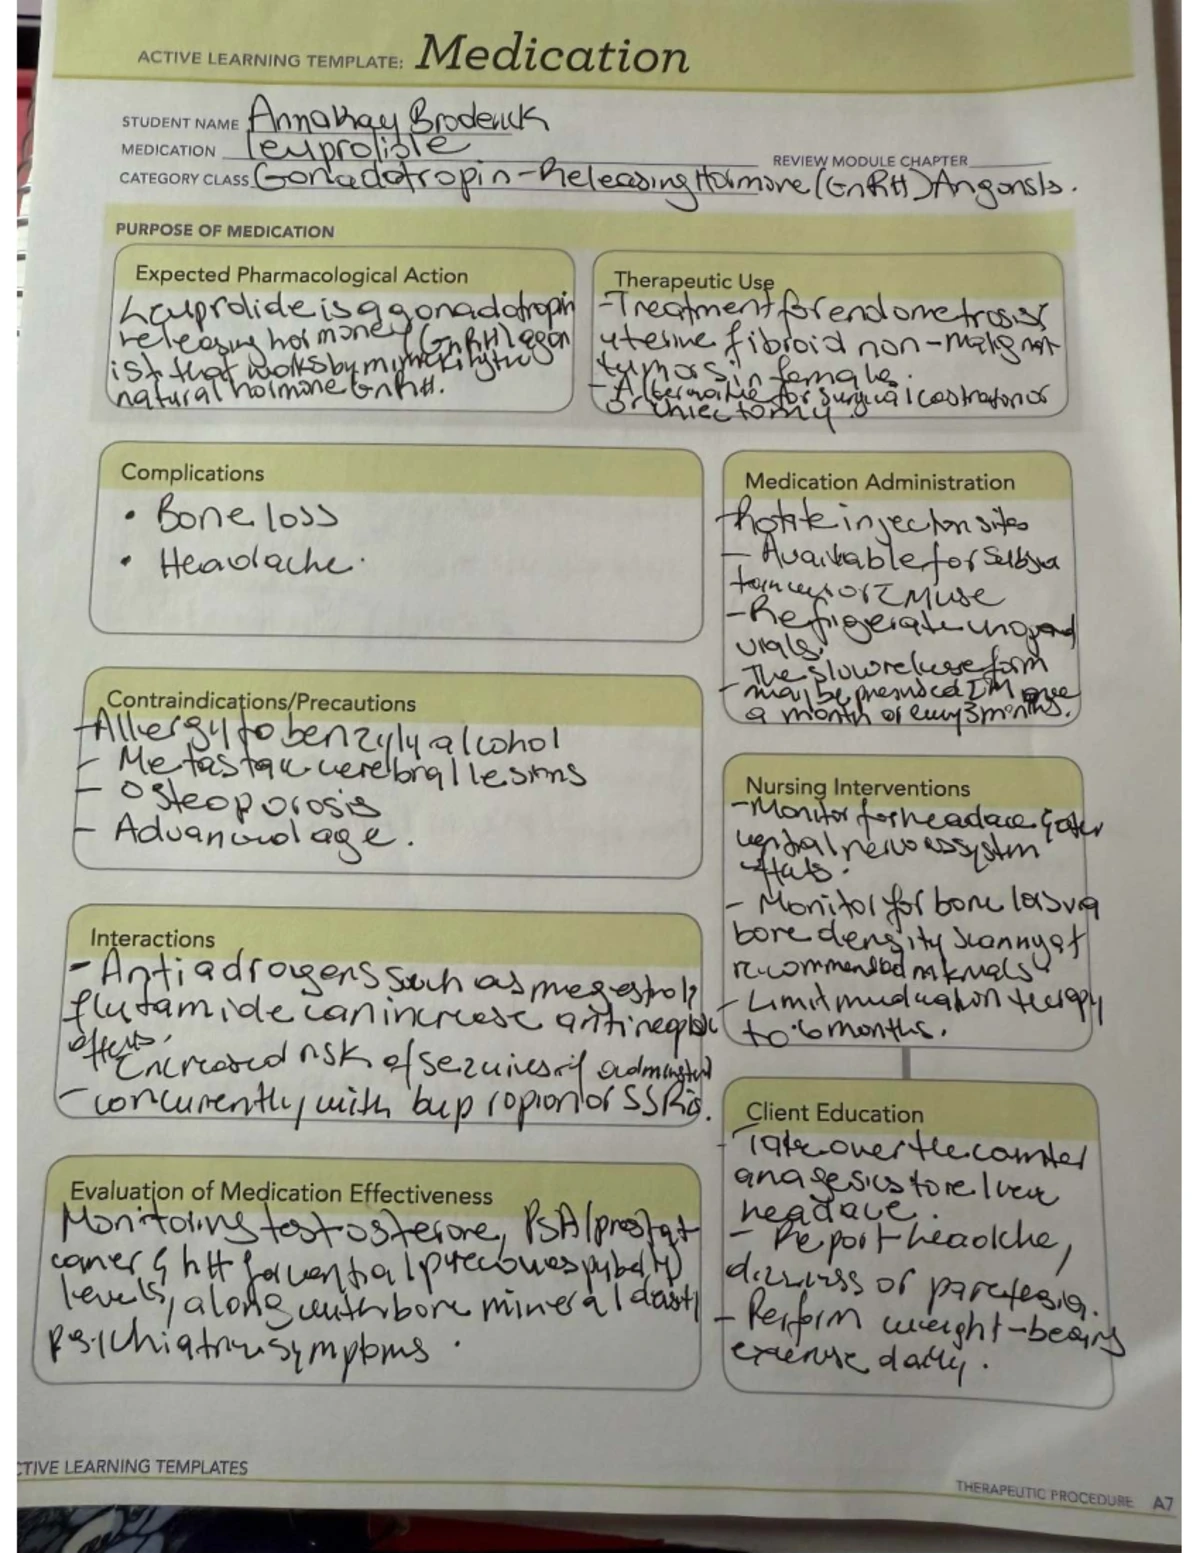 ACTIVE LEARNING TEMPLATE: Medication
STUDENT NAME Annakay Broderick
MEDICATION leuprolide
REVIEW MODULE CHAPTER
CATEGORY CLASS Gonadotropin-Releasing Hormone (GnRH) Angonsts.
PURPOSE OF MEDICATION
Expected Pharmacological Action
Leuprolide is a gonadotropin
releasing hormone (GnRH) agon
ist that works by mimicking the
natural hormone GnRH.
Therapeutic Use
-Treatment for endometrosis
uterine fibroid non-malignant
tumors in female.
- Alternative for surgical castration or
orchiectomy.
Complications
• Bone loss
• Headache.
Contraindications/Precautions
-Allergy to benzyly alcohol
- Metastatic cerebral lesions
- Osteoporosis
- Advanced age.
Interactions
- Antiadrogens such as megestrol,
flutamide can increase antineoplastic
effects.
Increased risk of seizures if administered
- concurrently with bupropion or SSRIs.
Evaluation of Medication Effectiveness
Monitoring testosterone, PSA (prostate
cancer & LH for central precocious puberty)
levels, along with bone mineral density
psychiatric symptoms.
Medication Administration
Rotate injection sites
- Available for subcu
taneous or IM use
- Refrigerate unopened
vials.
The slow release form
- may be prescribed IM once
a month or every 3 months.
Nursing Interventions
-Monitor for headace & other
central nervous system
effects.
- Monitor for bone loss via
bone density scanning at
recommended intervals
- Limit medication therapy
to 6 months.
Client Education
- Take over the counter
anagesics to relieve
headace.
- Report headache,
dizziness or paresthesia.
- Perform weight-bearing
exercise daily.
CTIVE LEARNING TEMPLATES
THERAPEUTIC PROCEDURE A7